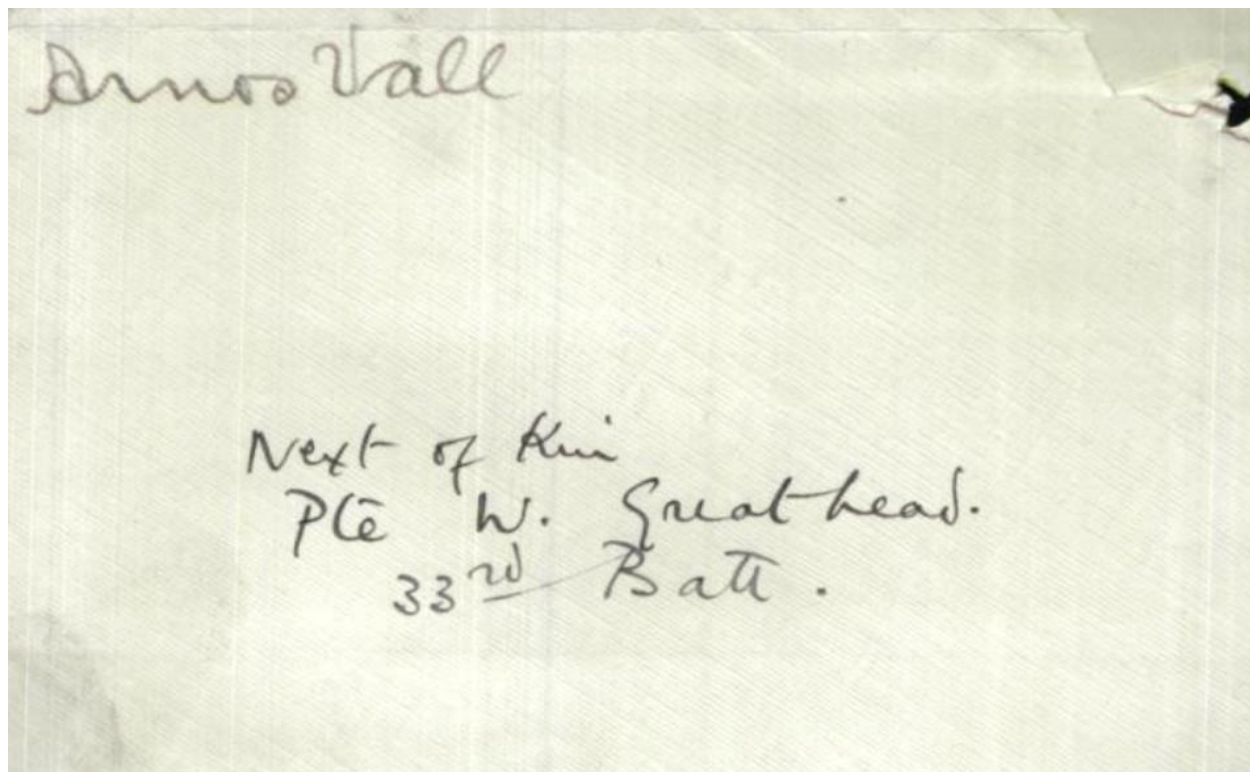 Arnos Vall
Next of Kin
Pte W. Greathead.
33rd Batt.